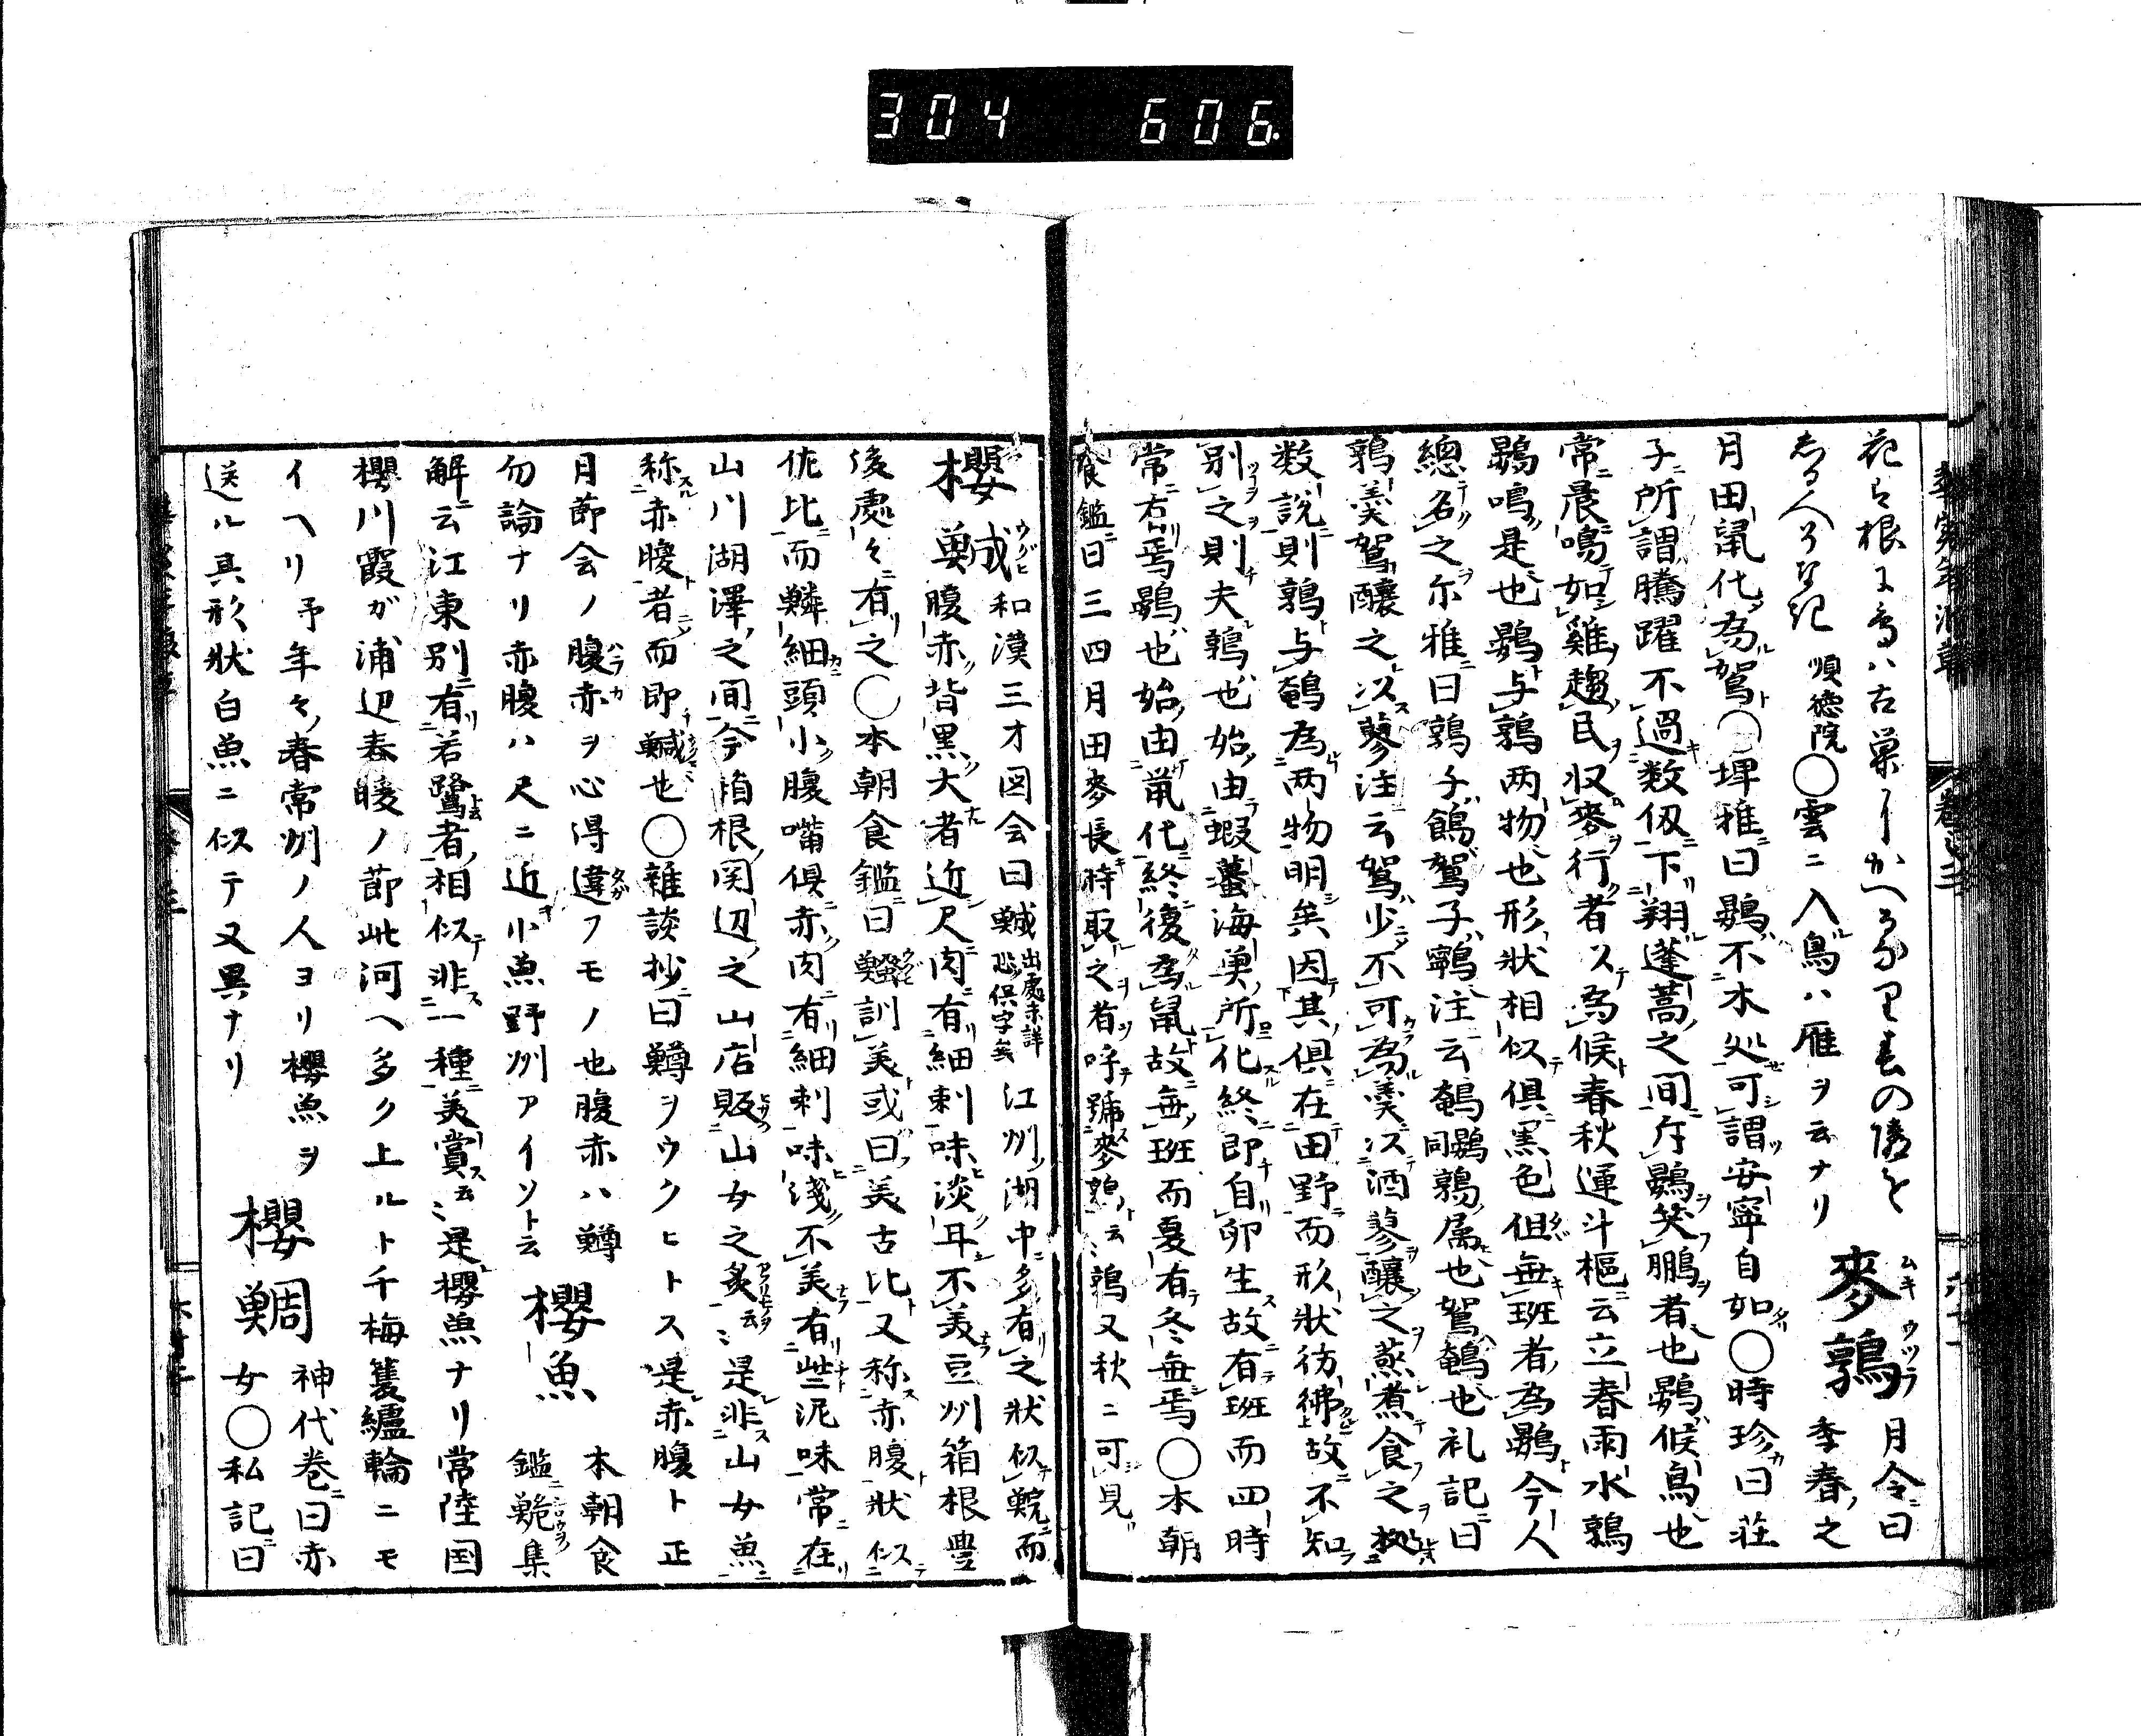 304 606.
花は根に鳥は古巣にかへるなり春の湊を
しる人そなき 順徳院〇雲ニ入鳥ハ雁ヲ云ナリ 麥鶉 ムキウツラ 月令曰季春之
月田鼠化為鴽〇埤雅曰鷃不木処可謂安寧自如〇時珍曰荘
子所謂騰躍不過数仭下翔蓬蒿之間斥鷃笑鵬者也鷃候鳥也
常晨鳴如雞趨民収麥行者以為候春秋運斗樞云立春雨水鶉
鷃鳴是也鷃与鶉両物也形状相似倶黒色但無班者為鷃今人
總名之尓雅曰鶉子鴽子注云鵪鷃同鶉属也鴽鵪也礼記曰
鶉羹鴽釀之以蓼注云鴽少不可為羹以酒蓼釀之蒸煮食之
数説則鶉与鵪為両物明矣因其倶在田野而形状彷彿故不知
別之則夫鶉也始由蝦蟇海魚所化終即自卵生故有班而四時
常有焉鷃也始由鼠化終復為鼠故無班而夏有冬無焉〇本朝
食鑑曰三四月田麥長時取之者呼號麥鶉云〻鶉又秋ニ可見
櫻鯎 ウグヒ 和漢三才図会曰鯎 出處未詳 恐俣字矣 江州湖中多有之状似鯇而
腹赤背黒大者近尺肉有細刺味淡耳不美豆州箱根豊
後處々有之〇本朝食鑑曰訓美或曰美古比又称赤腹状似
而鱗細頭小腹嘴倶赤肉有細刺味淺不美有些泥味常在
山川湖澤之間今箱根関辺之山店販山女之炙云〻是非山女魚
称赤腹者而即鯎也〇雜談抄曰鱒ヲウクヒトス是赤腹ト正
月節会ノ腹赤ヲ心得違フモノ也腹赤ハ鱒
勿論ナリ赤腹ハ尺ニ近小魚野州アイソト云 櫻魚 本朝食鑑集
解云江東別有若鷺者相似非一種美賞云〻是櫻魚ナリ常陸国
櫻川霞が浦辺春暖ノ節此河ヘ多ク上ルト千梅篗纑輪ニモ
イヘリ予年々春常州ノ人ヨリ櫻魚ヲ
送ル其形状白魚ニ似テ又異ナリ 櫻鯛 神代巻曰赤女〇私記曰